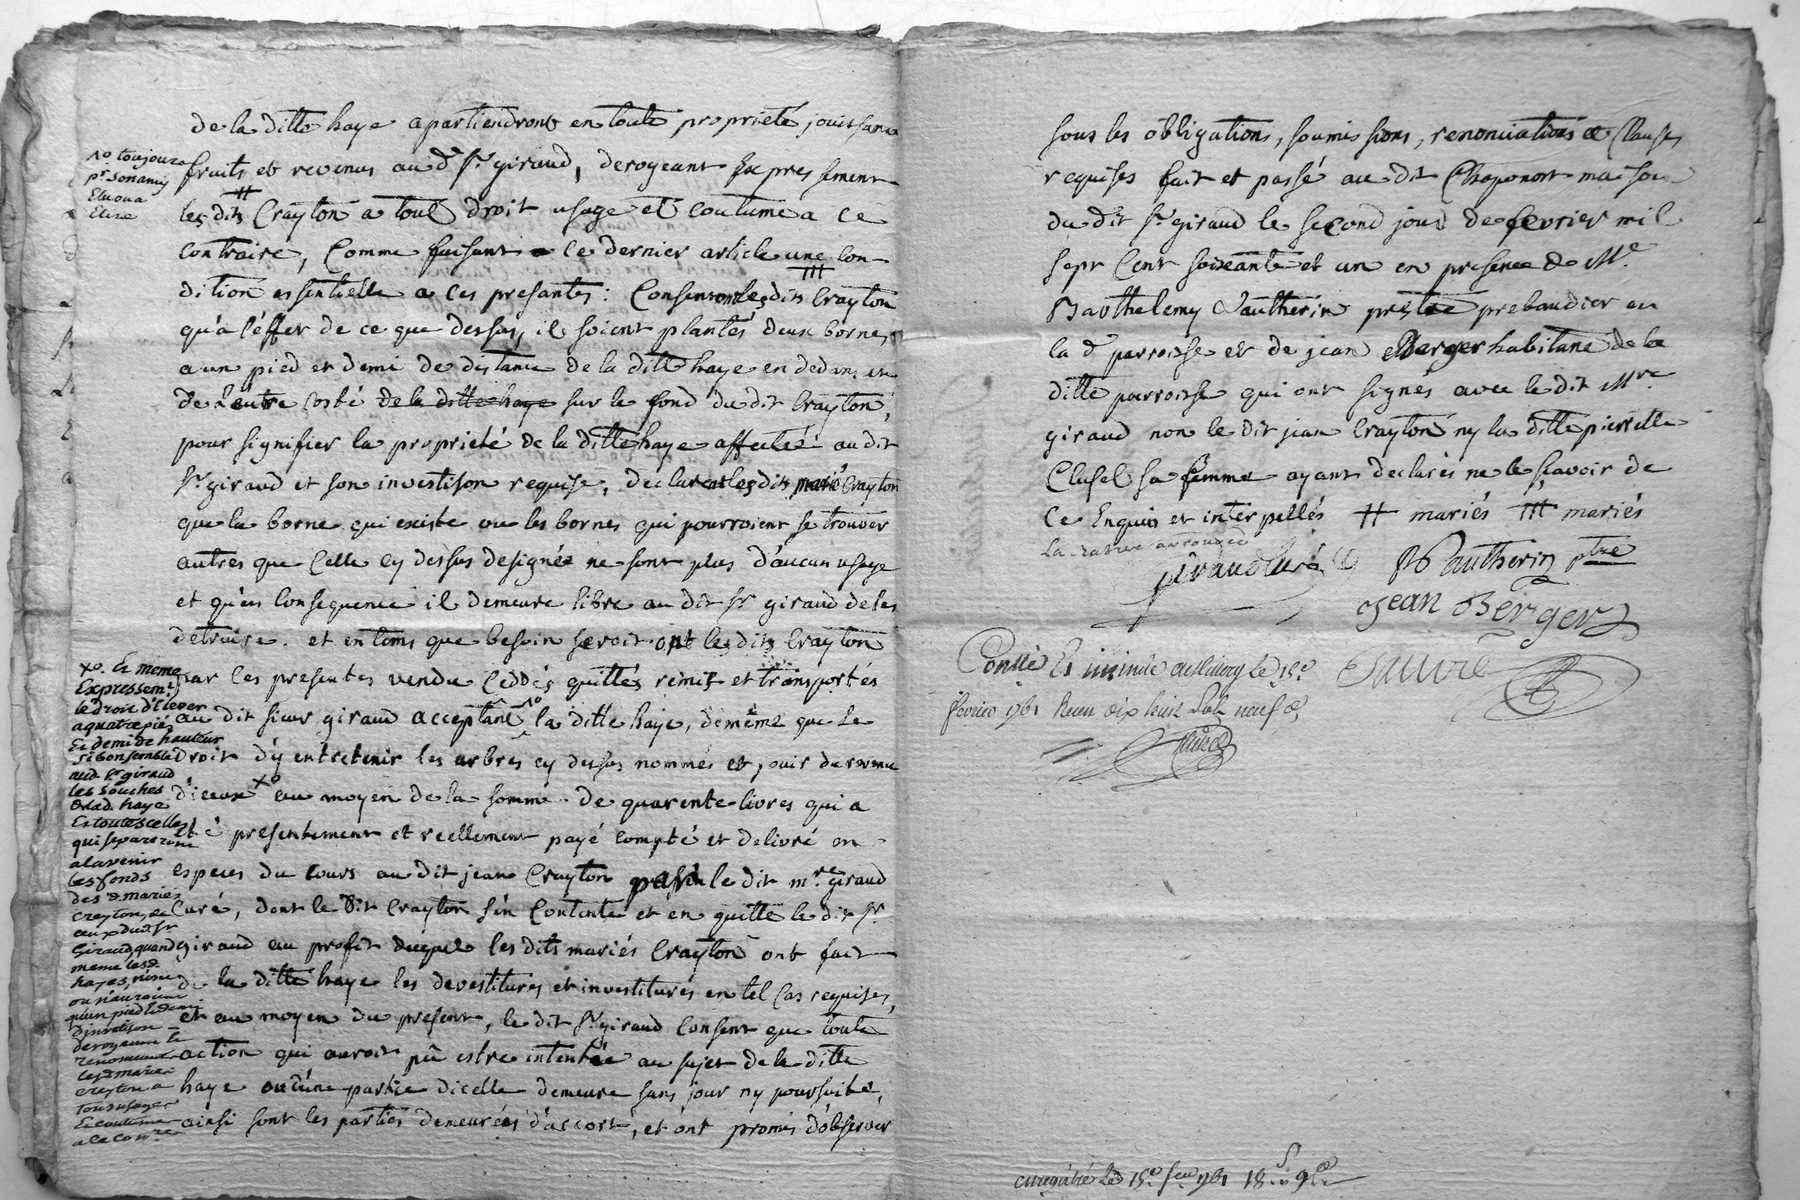 de la ditte haye apartiendront en toute proprieté, jouissance
fruits et revenus au d. Sr. giraud, derogeant Expressement
les dits Crayton a tout droit usage et coutume a ce
contraire, Comme faisant ce dernier article une con-
dition essentielle a ces presantes: Consentent les dits Crayton
qu'a l'éffet de ce que dessus, ils soient plantés deux bornes
a un pied et demi de distance de la ditte haye en dedans et
de l'autre costé de la ditte haye sur le fond du dit Crayton,
pour signifier la proprieté de la ditte haye affectée au dit
Sr. giraud et son investison requise, declarent les dits mariés Crayton
que la borne qui existe ou les bornes qui pourroient se trouver
autres que Celle cy dessus designée ne sont plus d'aucun usage
et qu'en Consequence il demeure libre au dit Sr giraud de les
detruire. et en tems que besoin seroit ont les dits Crayton
par les presentes vendu Ceddés quittés remis et transportés
au dit sieur giraud acceptant xo la ditte haye, de même que le
droit d'y entretenir les arbres cy dessus nommés et jouir du revenu
d'iceux xo au moyen de la somme de quarente livres qui a
eté presentement et reellement payé compté et delivré en
especes du cours au dit jean Crayton par le dit mre. giraud
Curé, dont le dit Crayton s'en Contente et en quitte le dit Sr
giraud au profit duquel les dits mariés Crayton ont fait
de la ditte haye les devestitures et investitures en tel Cas requises,
et au moyen du present, le dit Sr. giraud Consent que toute
action qui auroit pû estre intentée au sujet de la ditte
haye ou d'une partie d'icelle demeure sans jour ny poursuite,
ainsi sont les parties demeurées d'accort, et ont promis d'observer
xo toujours
pr. son amy
Elu ou a
Elire
xo. Et meme
Expressemt.
le droit d'Elever
a quatre pieds
Et demi de hauteur
si bon semble
aud. Sr giraud
les souches
de lad. haye
Et toutes celles
qui separeront
a l'avenir
les fonds
des d. mariés
Creyton, de
ceux dud. Sr
Giraud, quand
meme les d.
hayes,
ou n'auroient
qu'un pied et demi
d'investison
derogeant et
renonceant
les d. mariés
Creyton a
tous usages
Et coutumes
a ce contre
sous les obligations, soumissions, renonciations et Clauses
requises fait et passé au dit Chaponost maison
du dit Sr. giraud le second jour de fevrier mil
sept Cent soixante et un en presence de Me.
Barthelemy Vautherin prêtre prebandier en
la d. parroisse et de jean Berger habitant de la
ditte parroisse qui ont signés avec le dit Mre.
giraud non le dit jean Crayton ny la ditte pierrette
Clusel sa femme ayant declarés ne le sçavoir de
Ce Enquis et interpellés # mariés ## mariés
La rature aprouvée
giraud Curé Vautherin ptre
Jean Berger
Conllé Et insinué le 15e. Sauvre
fevrier 1761 Receu dix huit sols neuf d.
enregistré le 15e. fev 1761 18 s 9 d